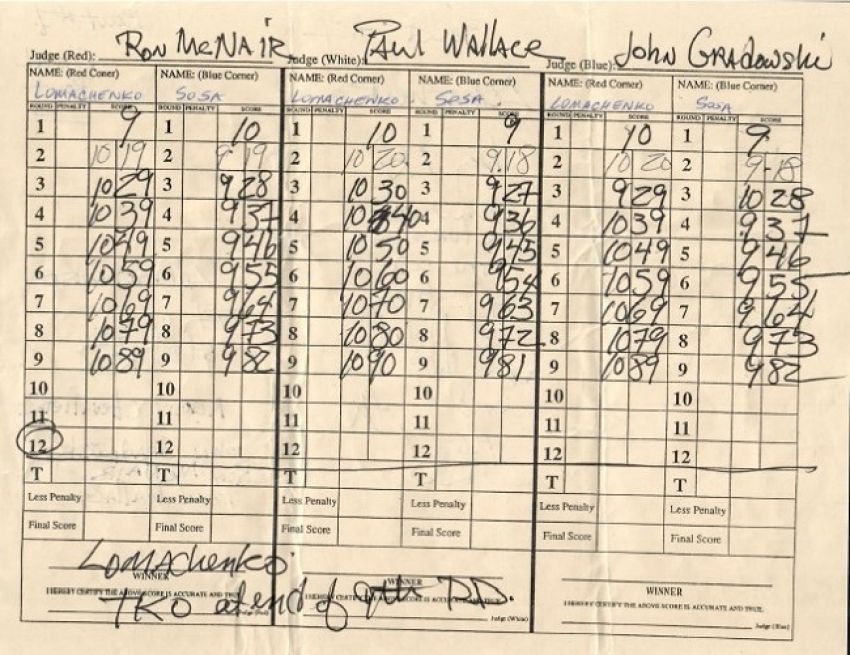 Judge (Red): Ron McNair Judge (White): Paul Wallace Judge (Blue): John Gradowski
NAME: (Red Corner) NAME: (Blue Corner) NAME: (Red Corner) NAME: (Blue Corner) NAME: (Red Corner) NAME: (Blue Corner)
LOMACHENKO SOSA LOMACHENKO SOSA LOMACHENKO SOSA
ROUND PENALTY SCORE ROUND PENALTY SCORE ROUND PENALTY SCORE ROUND PENALTY SCORE ROUND PENALTY SCORE ROUND PENALTY SCORE
1 9 1 10 1 10 1 9 1 10 1 9
2 10 19 2 9 19 2 10 20 2 9.18 2 10 20 2 9-18
3 10 29 3 9 28 3 10 30 3 9 27 3 9 29 3 10 28
4 10 39 4 9 37 4 10 40 4 9 36 4 10 39 4 9 37
5 10 49 5 9 46 5 10 50 5 9 45 5 10 49 5 9 46
6 10 59 6 9 55 6 10 60 6 9 54 6 10 59 6 9 55
7 10 69 7 9 64 7 10 70 7 9 63 7 10 69 7 9 64
8 10 79 8 9 73 8 10 80 8 9 72 8 10 79 8 9 73
9 10 89 9 9 82 9 10 90 9 9 81 9 10 89 9 9 82
10 10 10 10 10 10
11 11 11 11 11 11
12 12 12 12 12 12
T T T T T T
Less Penalty Less Penalty Less Penalty Less Penalty Less Penalty Less Penalty
Final Score Final Score Final Score Final Score Final Score Final Score
Lomachenko.
WINNER WINNER WINNER
I HEREBY CERTIFY THE ABOVE SCORE IS ACCURATE AND TRUE. I HEREBY CERTIFY THE ABOVE SCORE IS ACCURATE AND TRUE. I HEREBY CERTIFY THE ABOVE SCORE IS ACCURATE AND TRUE.
TKO at end of 9th RD.
Judge (White) Judge (Blue)